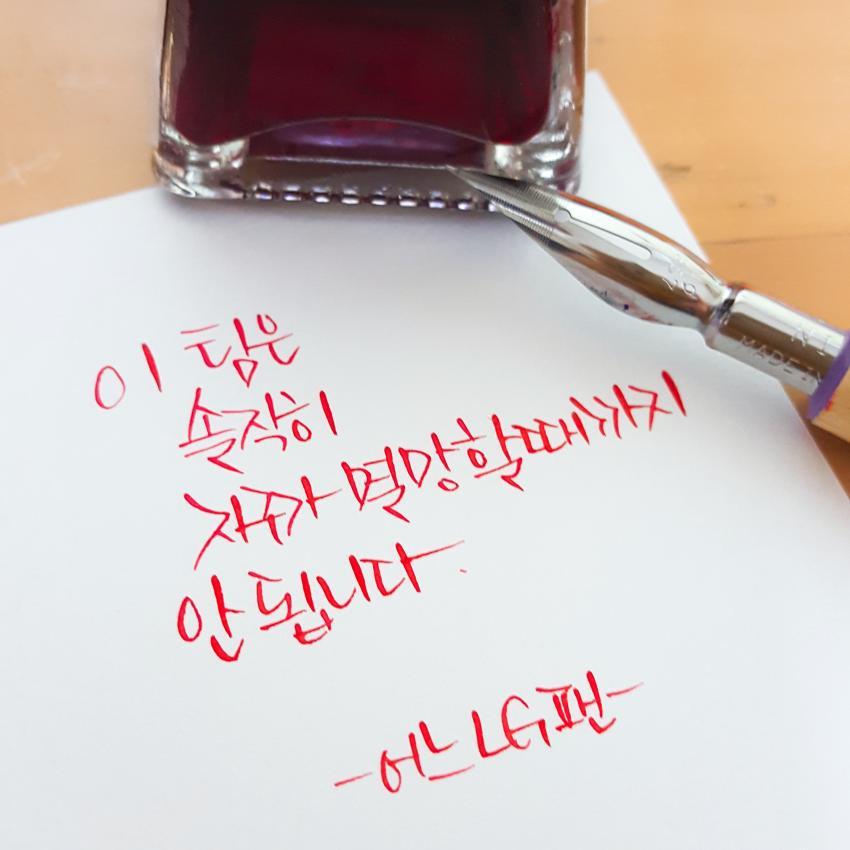 이 팀은
솔직히
지구가 멸망할때까지
안 됩니다.
-어느 LG팬-
MADE IN